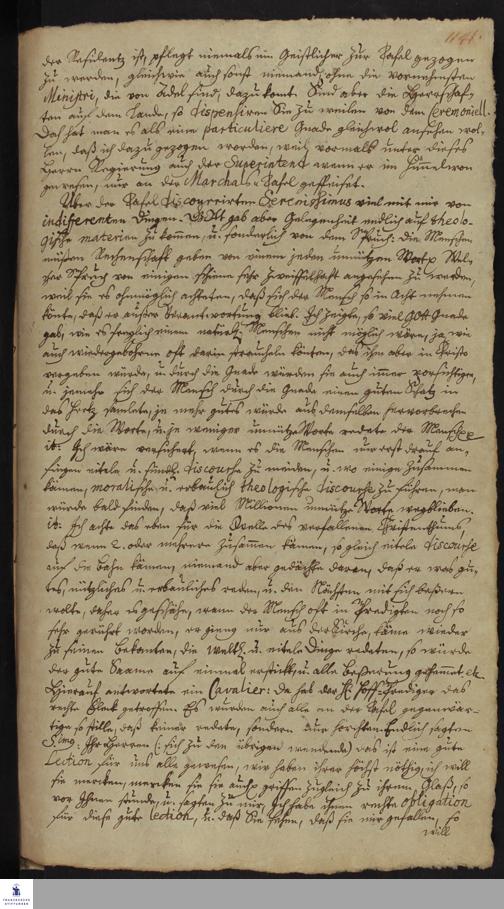 1141.
der Residentz ist, pflegt niemals ein Geistlicher zur Tafel gezogen
zu werden, gleichwie auch sonst niemand, ohne die vornehmsten
Ministri, die von Adel sind, dazu komt. Sind aber die Herrschaf-
ten auf dem Lande, so dispensiren Sie zu weilen von dem Ceremoniell.
Doch hat man es als eine particuliere Gnade gleichwol ansehen wol-
len, daß ich dazu gezogen worden, weil vormals unter dieses
Herrn Regierung auch der Superintend wenn er im
gewesen, nur an der Marchals Tafel gespeiset.
Uber der Tafel discourirten Serenissimus viel mit mir von
indifferenten Dingen. Gott gab aber Gelegenheit endlich auf theolo-
gische materien zu komen, u. sonderlich von dem Spruch: Die Menschen
müssen Rechenschaft geben von einem jeden unnützen Wort. Wel-
cher Spruch von einigen schiene sehr zweiffelhaft angesehen zu werden,
weil sie es ohnmöglich achteten, daß sich der Mensch so in Acht nehmen
könte, daß er ausser Verantwortung blieb. Ich zeigte, so viel Gott Gnade
gab, wie es freylich einem natürl. Menschen nicht möglich wäre, ja, wie
auch wiedergebohrne oft darin straucheln könten, das ihn aber in Christo
vergeben würde, u. durch die Gnade würden sie auch immer vorsichtiger,
u. jemehr sich der Mensch durch die Gnade einen guten Schatz in
das Hertz samlete, je mehr gutes würde aus demselben hervorbrechen
durch die Worte, u. je weniger unnütze Worte redete der Mensch
it: Ich wäre versichert, wenn es die Menschen nur erst drauf an-
fingen eitele u. sündl. discourse zu meiden, u. wo einige zusammen
kämen, moralische u. erbaulich theologische discourse zu führen, man
würde bald finden, daß viel Millionen unnütze Worte wegblieben.
it: Ich achte das eben für die Quelle des verfallenen Christenthums
daß wenn 2. oder mehrere zusamen kämen, so gleich eitele discourse
auf die bahn kämen, niemand aber gedächte daran, daß er was gu-
tes, nützliches u. erbauliches reden, u. den Nächsten mit sich beßern
wolte, daher es geschehe, wenn der Mensch oft in Predigten noch so
sehr gerührt worden, er gieng nur aus der Kirche, käme wieder
zu seinen bekanten, die weltl. u. eitele Dinge redeten, so würde
der gute Saame auf einmal erstickt, u. alle Beßerung gehemmt etc.
Hierauf antwortete ein Cavalier: Da hat der H. Hoff-Prediger das
rechte Fleck getroffen. Es wurden auch alle an der Tafel gegenwär-
tige so stille, daß keiner redete, sondern nur horchten. Endlich sagten
Simg: Ihr Herren (: sich zu den übrigen wendende) das ist eine gute
Lection für uns alle gewesen, wir haben ihrer höchst nöthig, ich will
sie mercken, mercken sie sie auch, griffen zugleich zu ihrem Glaß, so
vor Ihnen stunde, u. sagten zu mir, ich habe ihnen rechte obligation
für diese gute lection, u. daß Sie sehen, daß sie mir gefallen, so
will
FRANCKESCHE
STIFTUNGEN